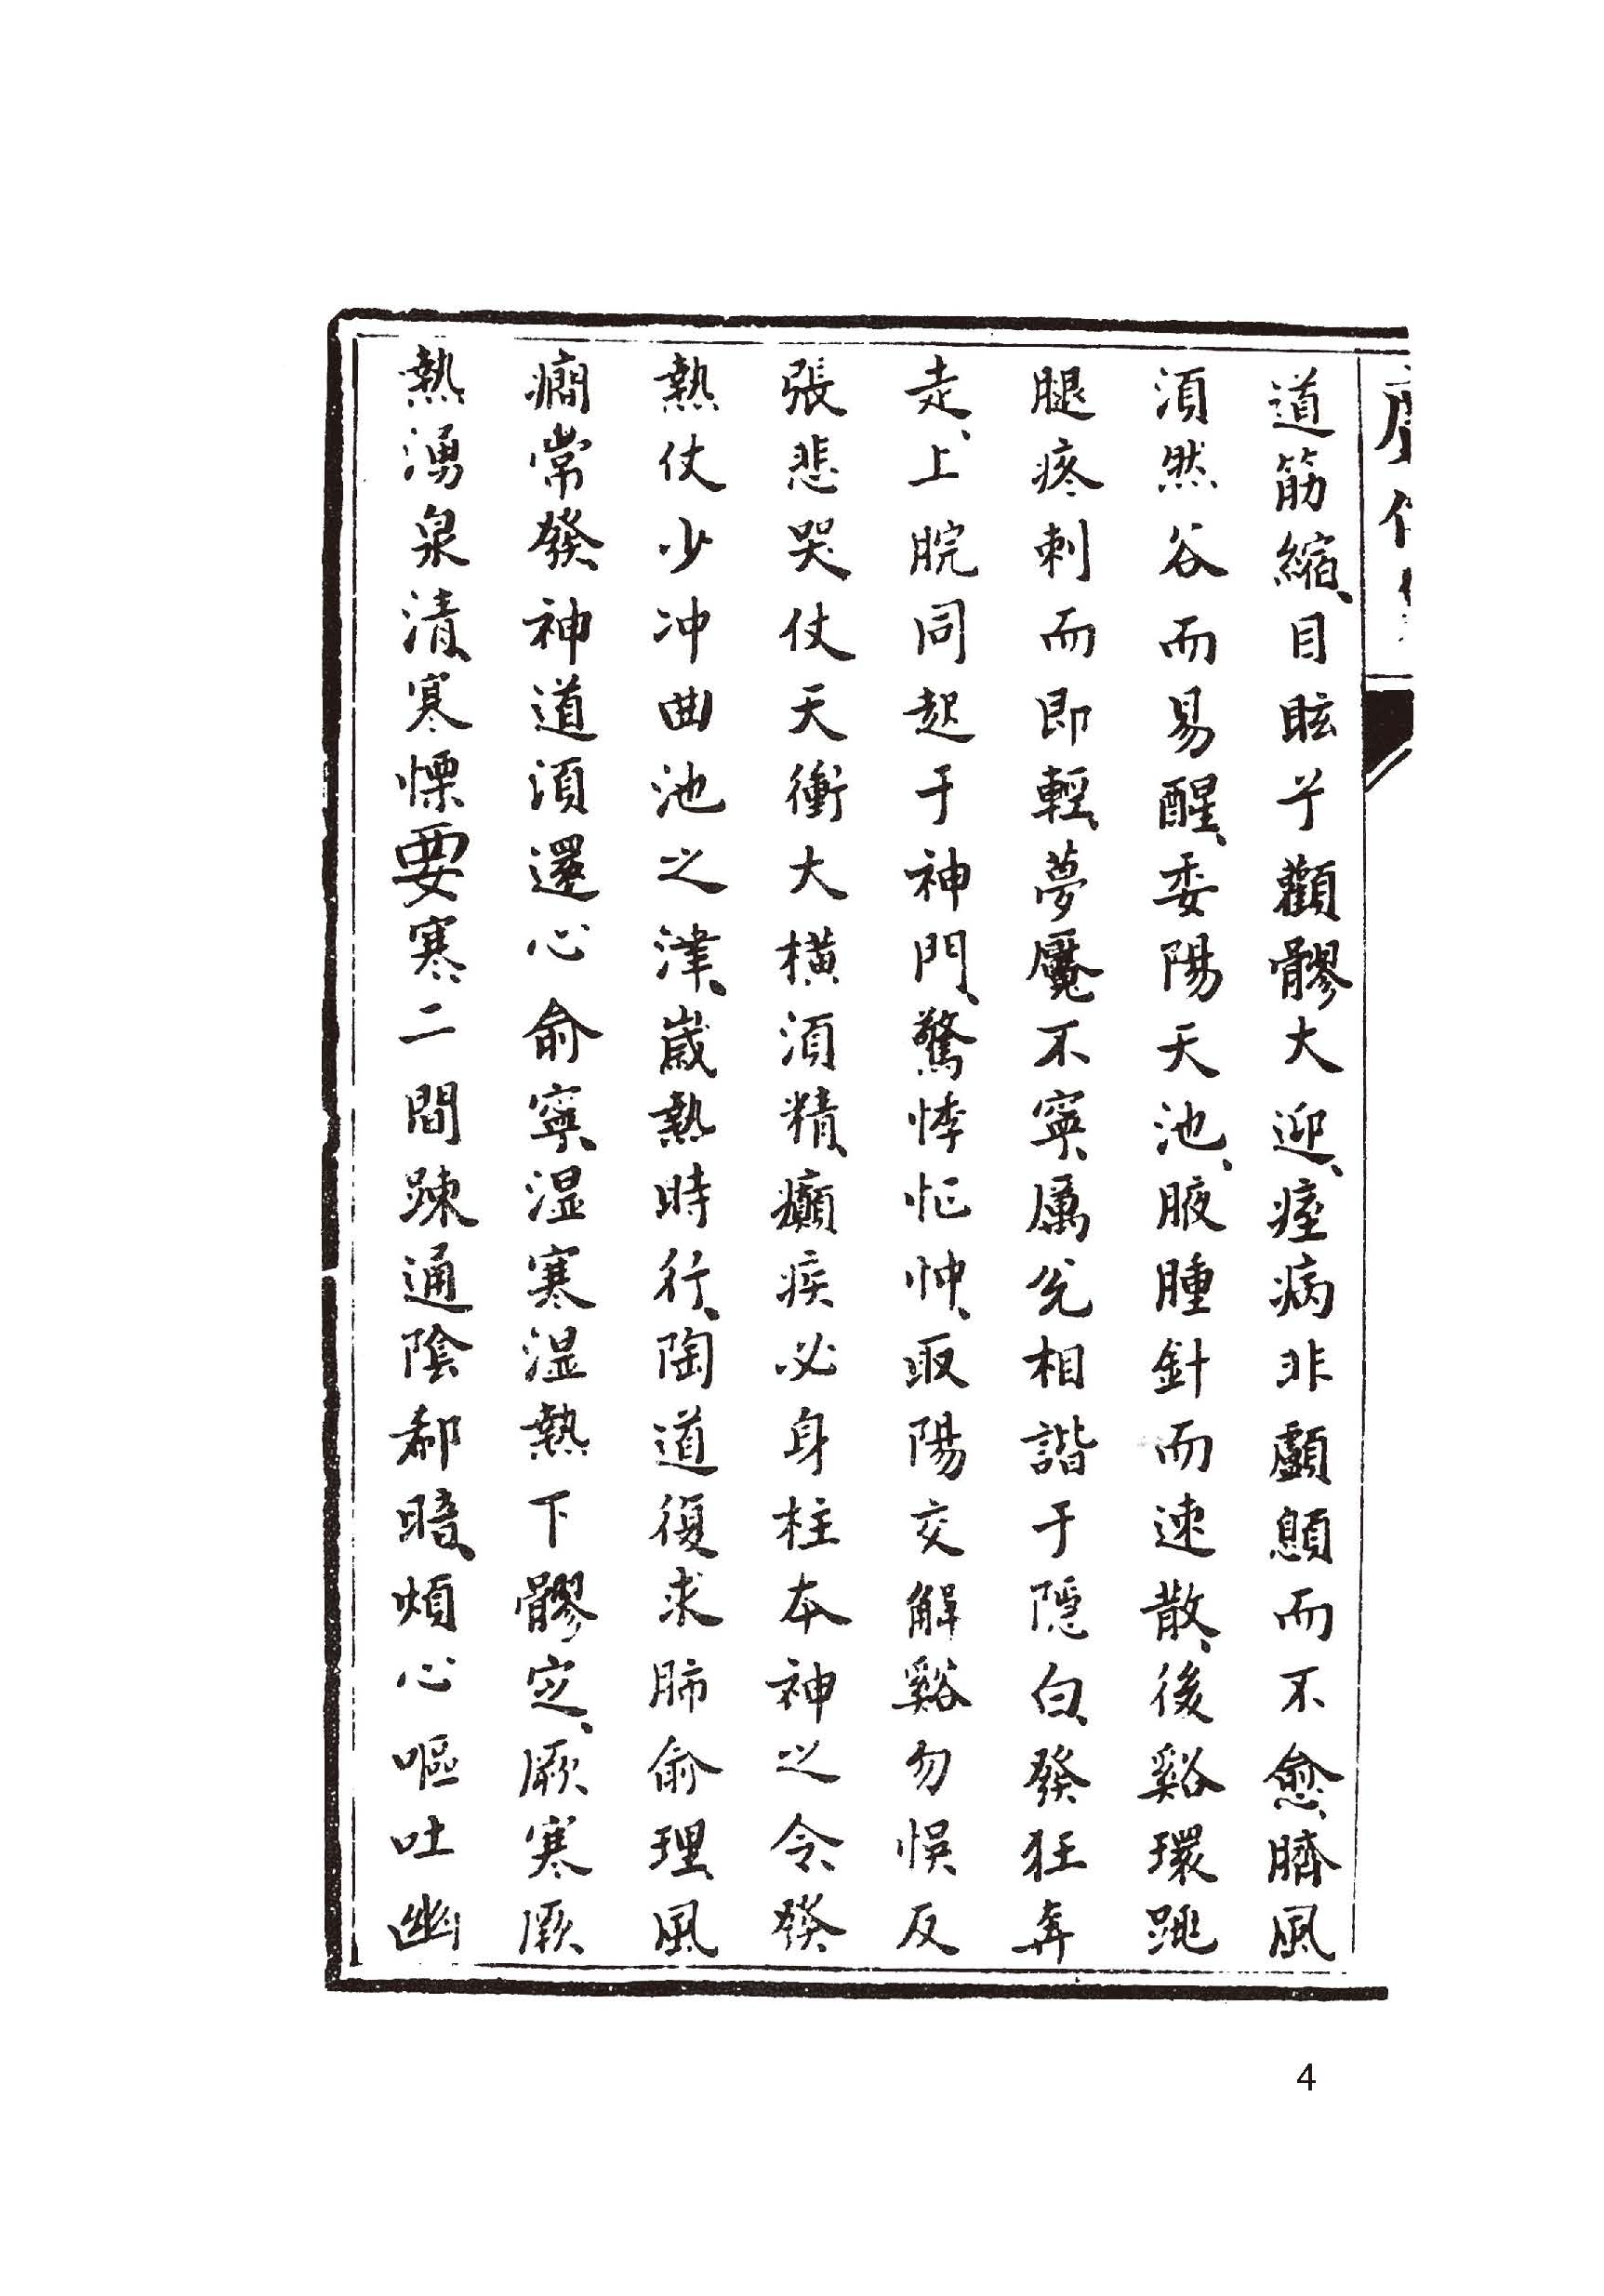 道筋縮、目眩兮顴髎大迎、痓病非顱顖而不愈、臍風
須然谷而易醒、委陽天池、腋腫針而速散、後谿環跳
腿疼刺而即輕、夢魘不寧、厲兌相諧于隱白、發狂奔
走、上脘同起于神門、驚悸怔忡、取陽交解谿勿悞反
張悲哭仗天衝大橫須精、癲疾必身柱本神之令、發
熱仗少冲曲池之津、歲熱時行、陶道復求肺俞理、風
癇常發神道須還心俞寧、湿寒湿熱下髎定、厥寒厥
熱湧泉清、寒慄要寒二間踈通陰郄暗、煩心嘔吐幽
4